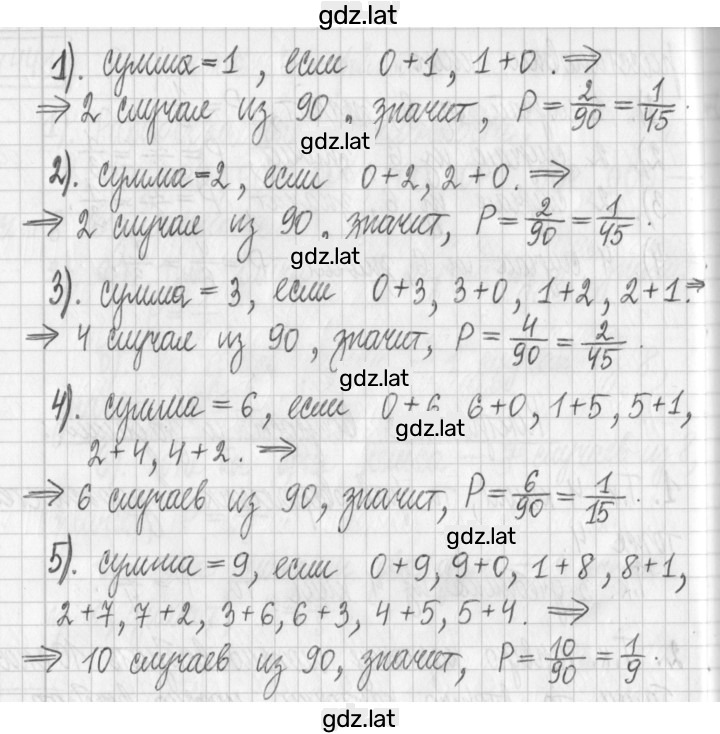 gdz.lat
1). сумма=1, если 0+1, 1+0. ⇒
⇒ 2 случае из 90. значит, P=2/90=1/45.
gdz.lat
2). сумма=2, если 0+2, 2+0. ⇒
⇒ 2 случае из 90. значит, P=2/90=1/45.
gdz.lat
3). сумма = 3, если 0+3, 3+0, 1+2, 2+1. ⇒
⇒ 4 случае из 90, значит, P=4/90=2/45.
gdz.lat
4). сумма = 6, если 0+6 6+0, 1+5, 5+1,
gdz.lat
2+4, 4+2. ⇒
⇒ 6 случаев из 90, значит, P=6/90=1/15.
gdz.lat
5). сумма = 9, если 0+9, 9+0, 1+8, 8+1,
2+7, 7+2, 3+6, 6+3, 4+5, 5+4. ⇒
⇒ 10 случаев из 90, значит, P=10/90=1/9.
gdz.lat